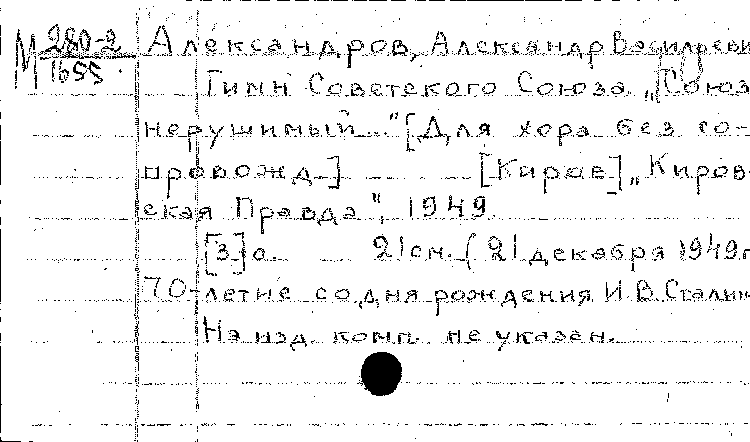 М 280-2
1655
Александров, Александр Васильеви
Гимн Советского Союза „Союз
нерушимый..." [Для хора без со-
провожд.] [Киров], „Киров-
ская Правда", 1949.
[3] с. 21 см. (21 декабря 1949г
70-летие со дня рождения И.В. Сталин
На изд. комп. не указан.